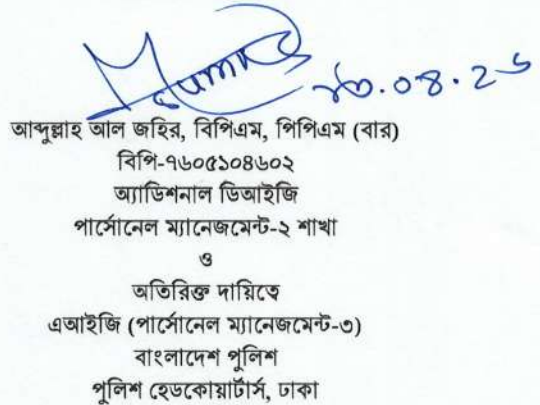 আব্দুল্লাহ আল জহির, বিপিএম, পিপিএম (বার)
বিপি-৭৬০৫১০৪৬০২
অ্যাডিশনাল ডিআইজি
পার্সোনেল ম্যানেজমেন্ট-২ শাখা
ও
অতিরিক্ত দায়িত্বে
এআইজি (পার্সোনেল ম্যানেজমেন্ট-৩)
বাংলাদেশ পুলিশ
পুলিশ হেডকোয়ার্টার্স, ঢাকা